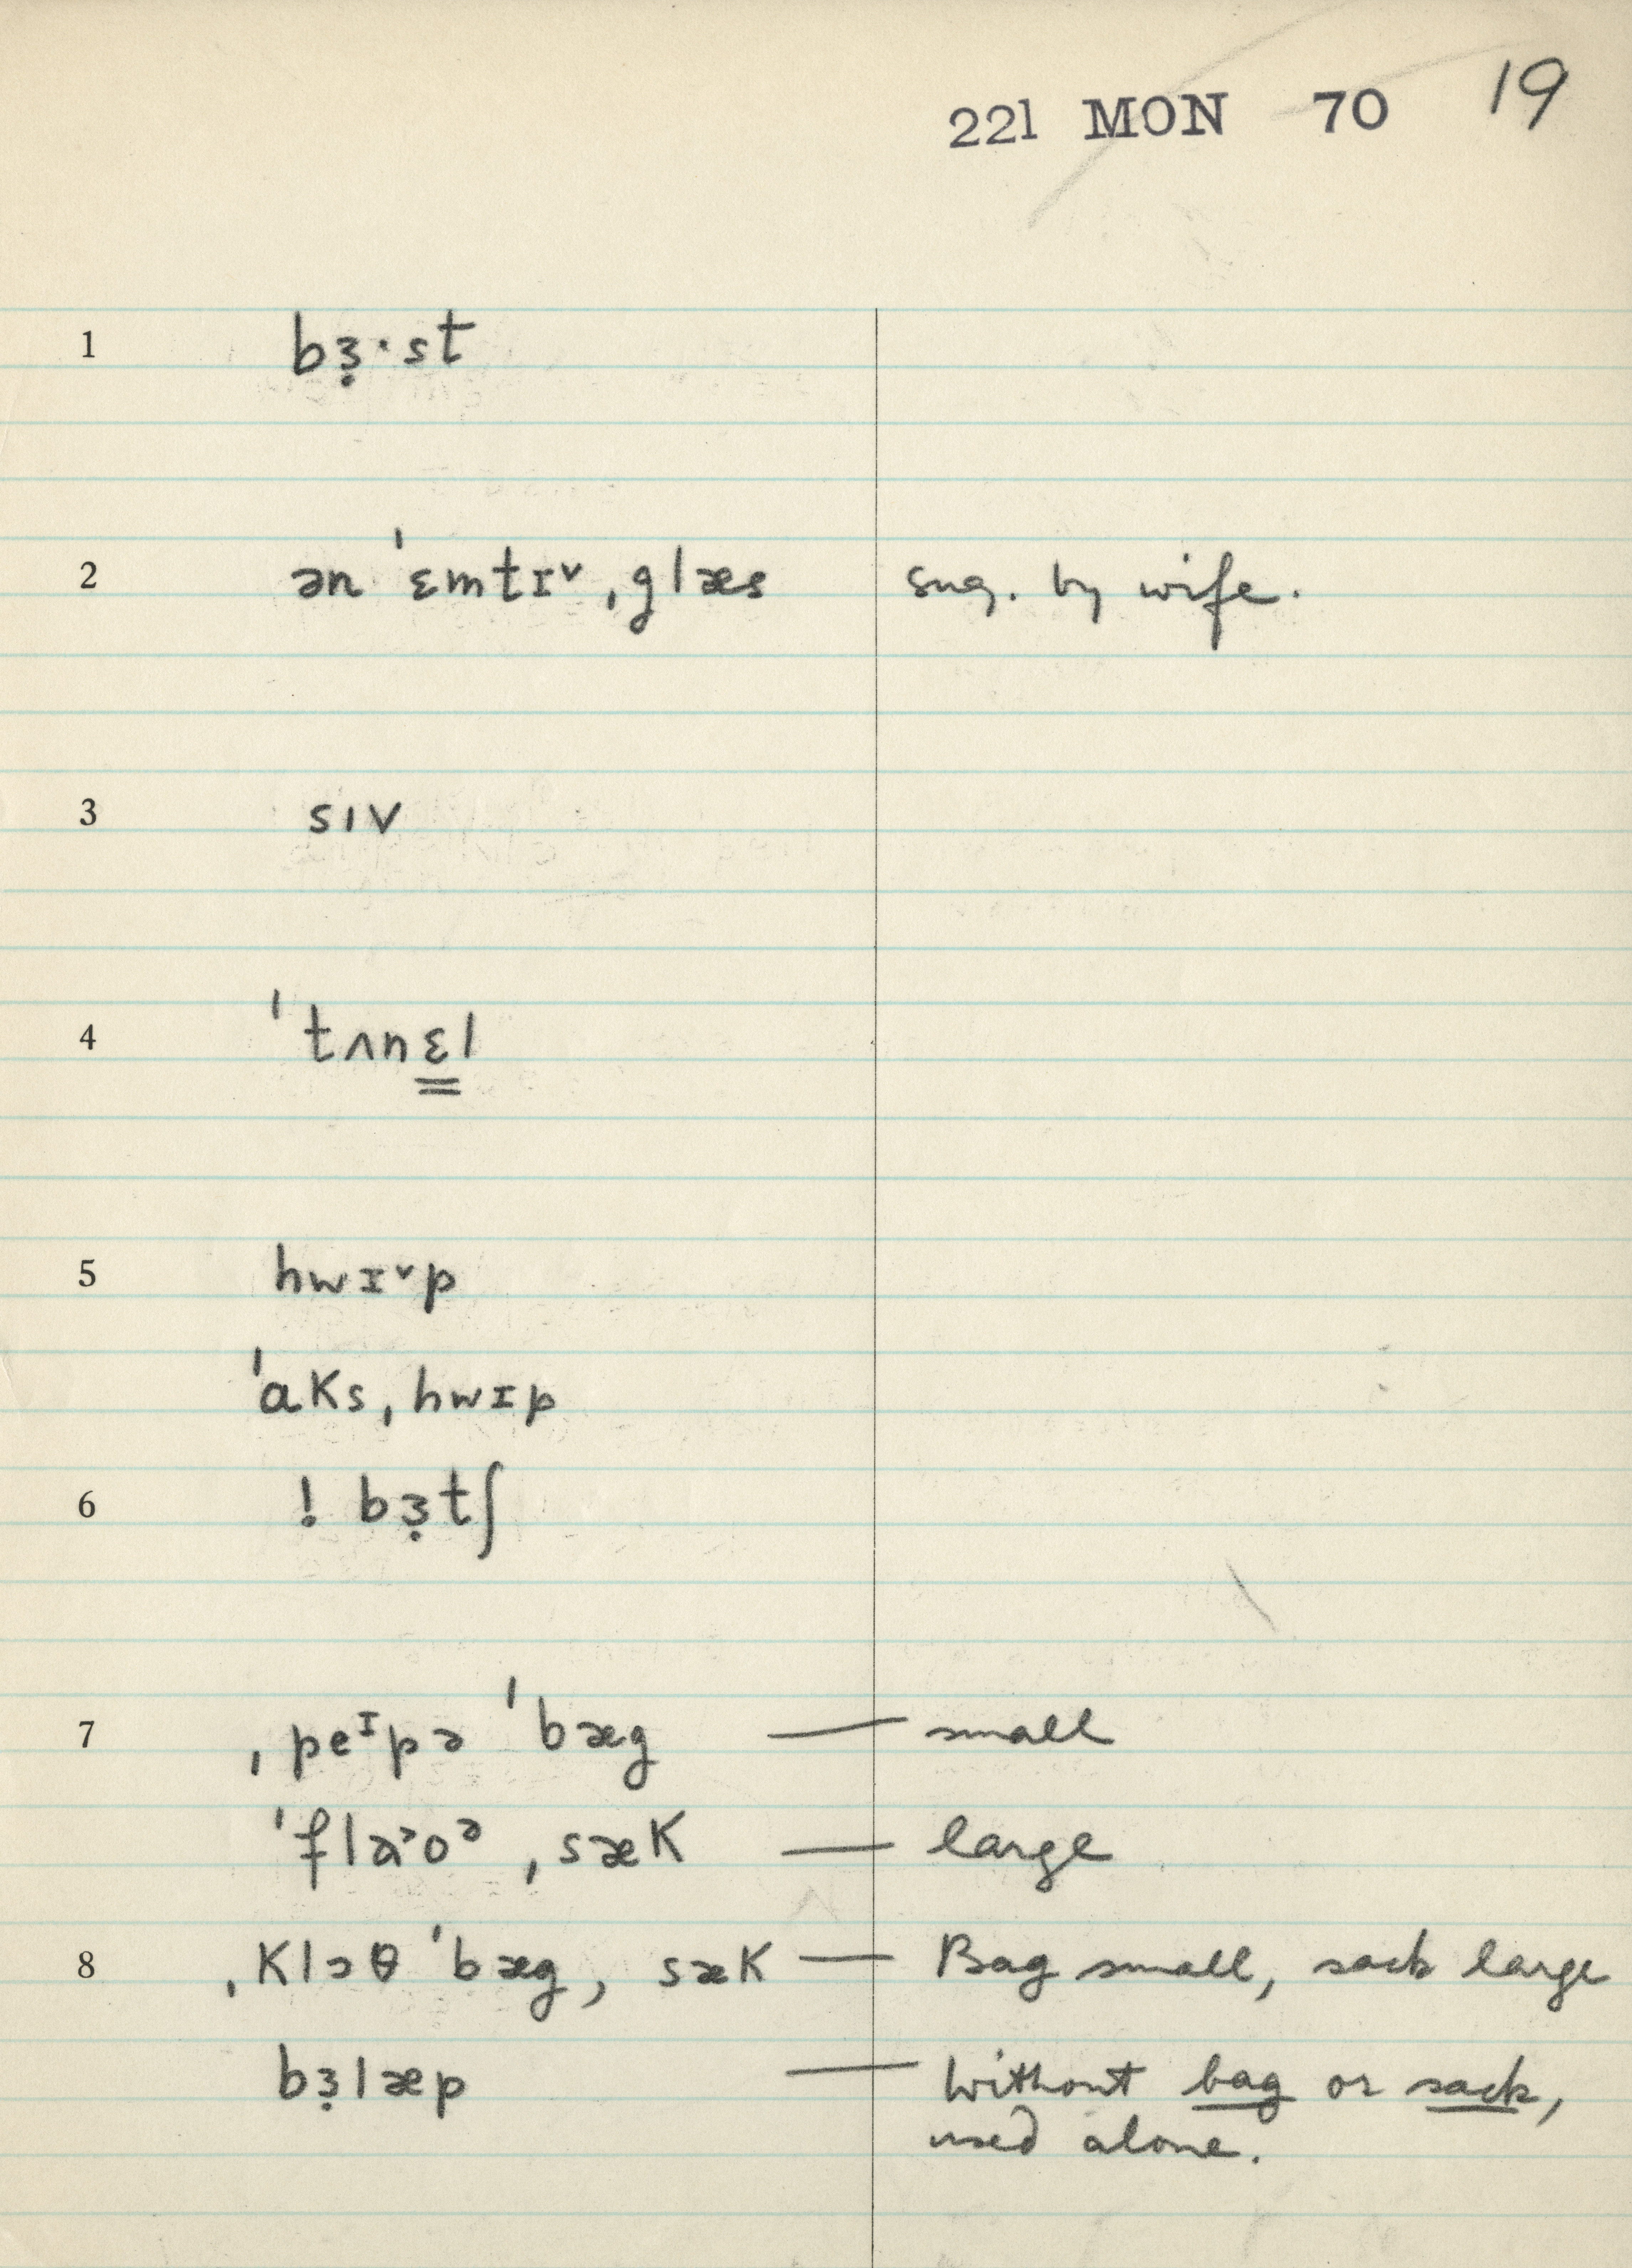 221 MON 70 19
1 bɜ̣·st
2 ən ˈɛmtɪᵛ ˌglæs sug. by wife.
3 sıv
4 ˈtʌnɛ̳l
5 hwɪᵛp
ˈaks ˌhwɪp
6 ! bɜ̣tʃ
7 ˌpeᶦpə ˈbæg — small
ˈflaʾoᵊ ˌsæk — large
8 ˌklɔθ ˈbæg, sæk — Bag small, sack large
bɜ̣læp — Without bag or sack,
used alone.